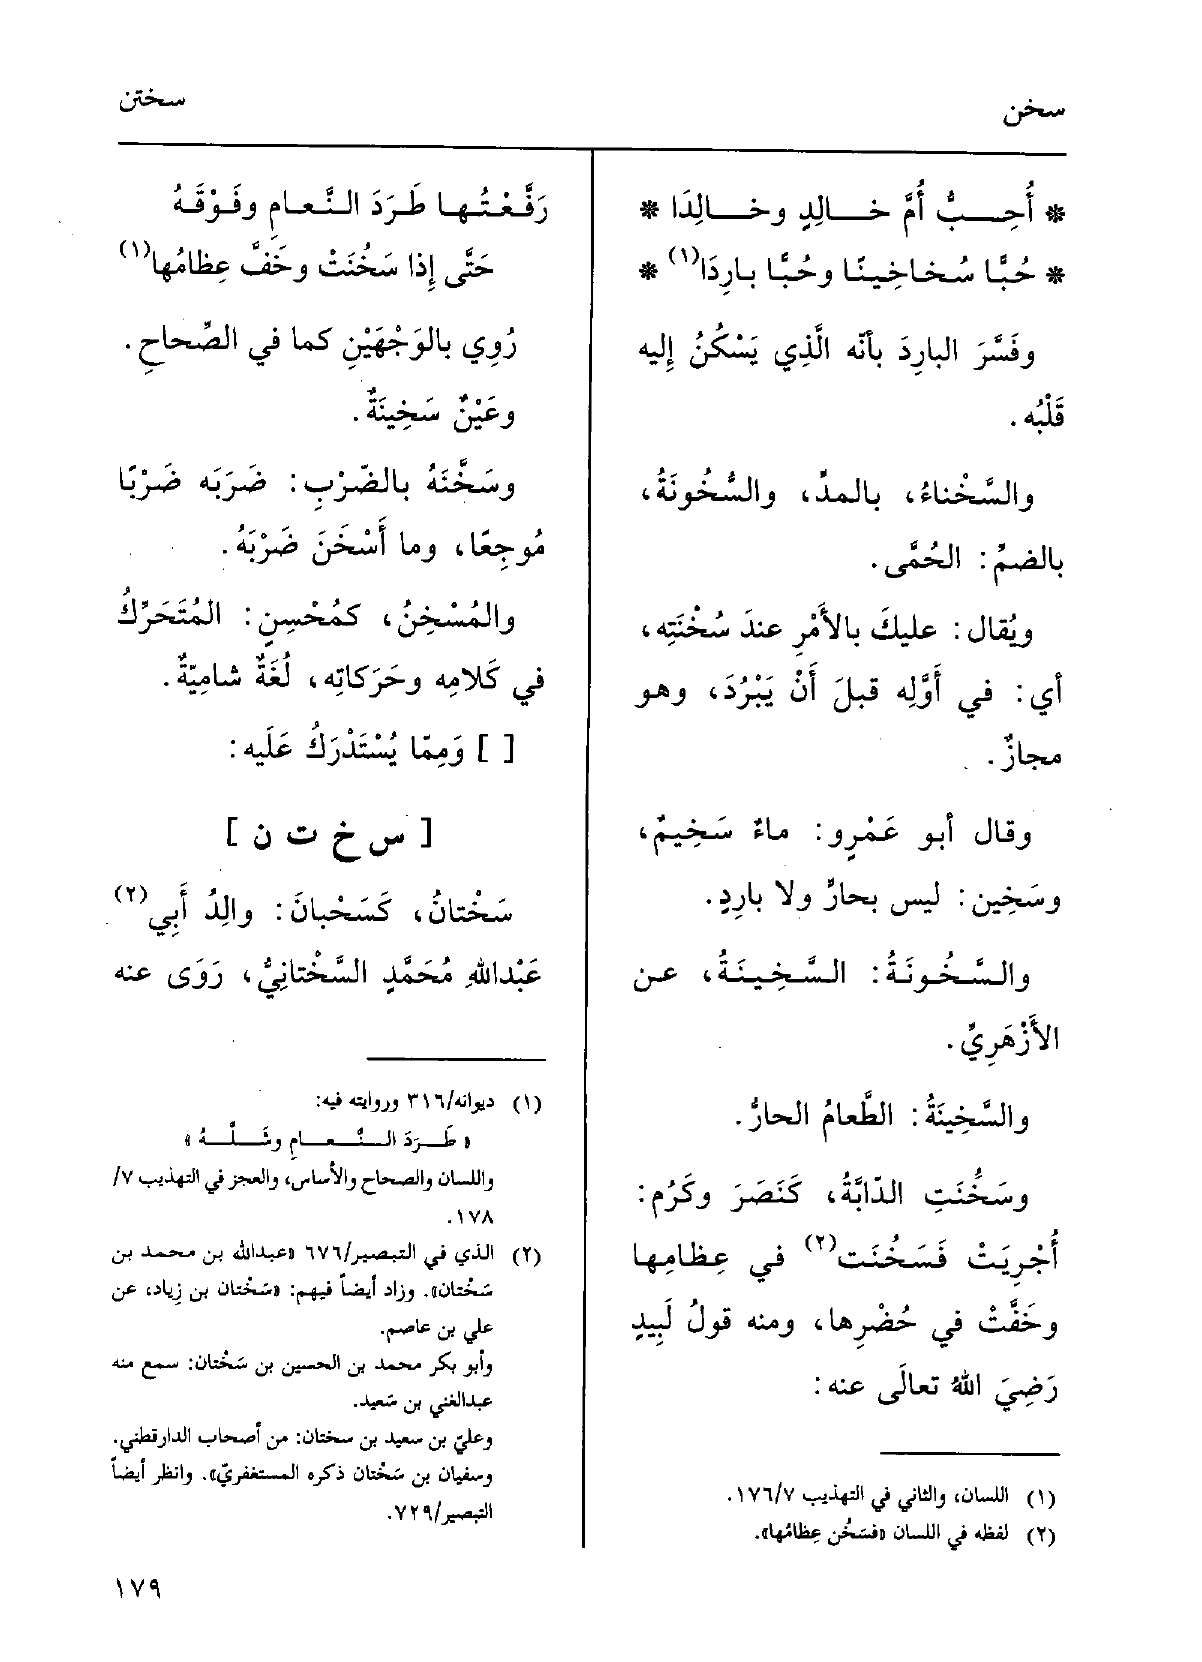 سخن
سختن
* أُحِبُّ أُمَّ خالِدٍ وخالِدَا *
* حُبًّا سُخاخِينًا وحُبًّا بارِدَا(١) *
وفَسَّرَ البارِدَ بأنّه الَّذِي يَسْكُنُ إِليه
قَلْبُه.
والسَّخْناءُ، بالمدِّ، والسُّخُونَةُ،
بالضمِّ: الحُمَّى.
ويُقال: عليكَ بالأَمْرِ عندَ سُخْنَتِه،
أي: في أَوَّلِه قبلَ أَنْ يَبْرُدَ، وهو
مجازٌ.
وقال أبو عَمْرٍو: ماءٌ سَخِيمٌ،
وسَخِين: ليس بحارٍّ ولا بارِدٍ.
والسَّخُونَةُ: السَّخِينَةُ، عن
الأَزْهَرِيِّ.
والسَّخِينَةُ: الطَّعامُ الحارُّ.
وسَخُنَتِ الدّابَّةُ، كَنَصَرَ وكَرُم:
أُجْرِيَتْ فَسَخُنَت(٢) في عِظامِها
وخَفَّتْ في حُضْرِها، ومنه قولُ لَبِيدٍ
رَضِيَ اللهُ تعالَى عنه:
(١) اللسان، والثاني في التهذيب ١٧٦/٧.
(٢) لفظه في اللسان «فسَخُن عِظامُها».
رَفَّعْتُها طَرَدَ النَّعامِ وفَوْقَهُ
حَتَّى إِذا سَخُنَتْ وخَفَّ عِظامُها(١)
رُوِي بالوَجْهَيْنِ كما في الصِّحاحِ.
وعَيْنٌ سَخِينَةٌ.
وسَخَّنَهُ بالضّرْبِ: ضَرَبَه ضَرْبًا
مُوجِعًا، وما أَسْخَنَ ضَرْبَهُ.
والمُسْخِنُ، كمُحْسِنٍ: المُتَحَرِّكُ
في كَلامِه وحَرَكاتِه، لُغَةٌ شامِيّةٌ.
[ ] وَمِمّا يُسْتَدْرَكُ عَلَيه:
[ س خ ت ن ]
سَخْتانُ، كَسَحْبانَ: والِدُ أَبِي(٢)
عَبْدِاللهِ مُحَمَّدٍ السَّخْتانِيُّ، رَوَى عنه
(١) ديوانه/٣١٦ وروايته فيه:
« طَرَدَ النَّعامِ وشَلَّهُ »
واللسان والصحاح والأساس، والعجز في التهذيب ٧/
١٧٨.
(٢) الذي في التبصير/٦٧٦ «عبدالله بن محمد بن
سَخْتان». وزاد أيضاً فيهم: «سَخْتان بن زِياد، عن
علي بن عاصم.
وأبو بكر محمد بن الحسين بن سَخْتان: سمع منه
عبدالغني بن سَعِيد.
وعليّ بن سعيد بن سختان: من أصحاب الدارقطني.
وسفيان بن سَخْتان ذكره المستغفريّ». وانظر أيضاً
التبصير/٧٢٩.
١٧٩